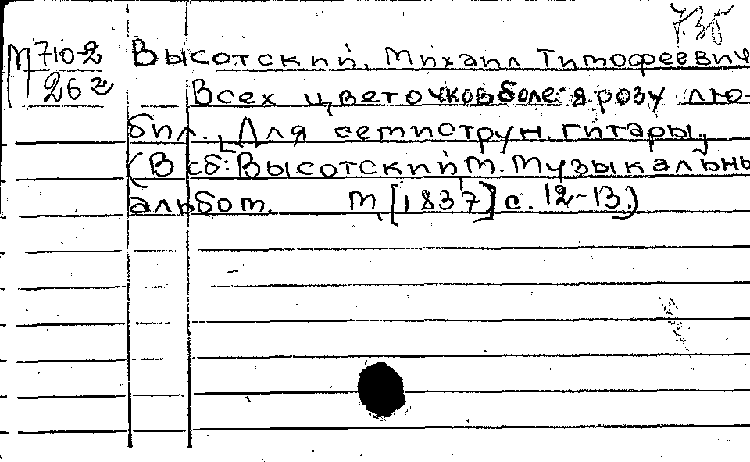 735
М 710-2 Высотский, Михаил Тимофеевич
26 2 Всех цветочков боле я розу лю-
бил. [Для семиструн. гитары,
(В сб: Высотский М. Музыкальны
альбом. М, [1837] с. 12-13.)